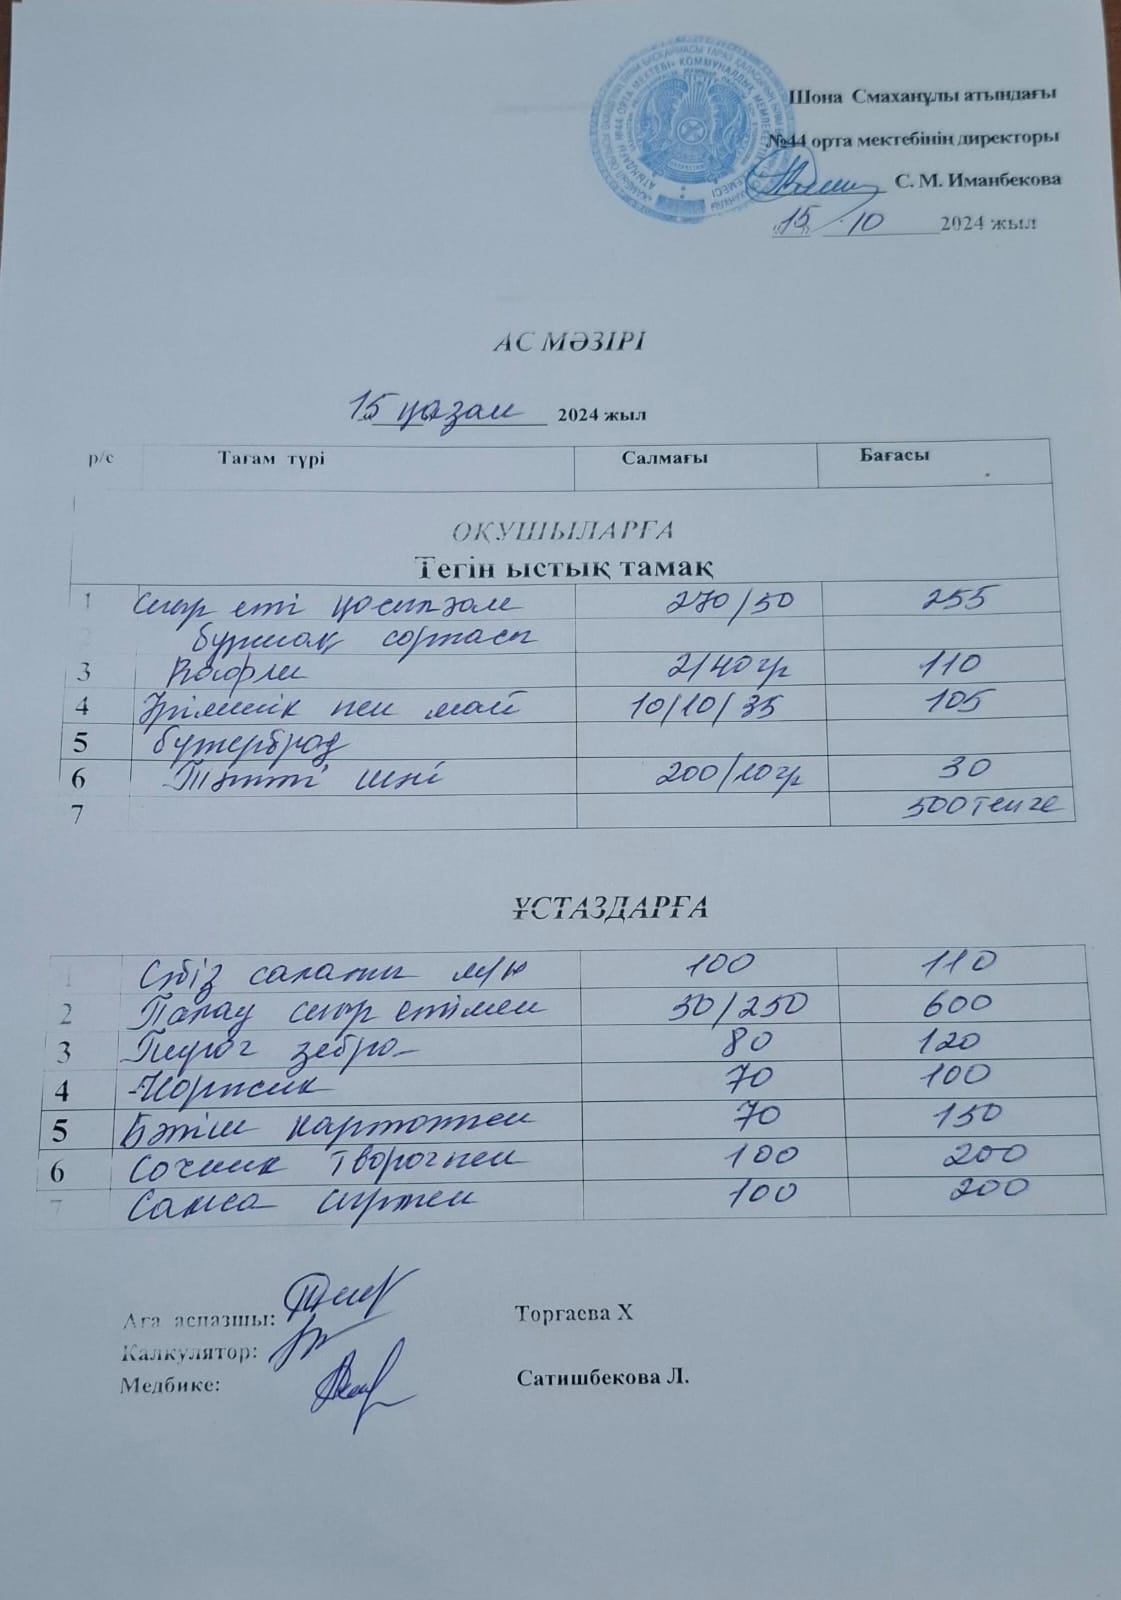 Шона Смаханұлы атындағы
№44 орта мектебінің директоры
С. М. Иманбекова
"15" 10 2024 жыл
АС МӘЗІРІ
15 қазан 2024 жыл
р/с Тағам түрі Салмағы Бағасы
ОҚУШЫЛАРҒА
Тегін ыстық тамақ
1 Сиыр еті қосылған 270/50 255
2 бұршақ сорпасы
3 Вафли 2/40гр 110
4 Ірімшік пен май 10/10/35 105
5 бутерброд
6 Тәтті шәй 200/10гр 30
7 500 теңге
ҰСТАЗДАРҒА
1 Сәбіз салаты м/н 100 110
2 Палау сиыр етімен 50/250 600
3 Пирог зебра 80 120
4 Коржик 70 100
5 Бәліш картоппен 70 150
6 Сочник творогпен 100 200
7 Самса етпен 100 200
Аға аспазшы: Торгаева Х
Калкулятор:
Медбике: Сатишбекова Л.